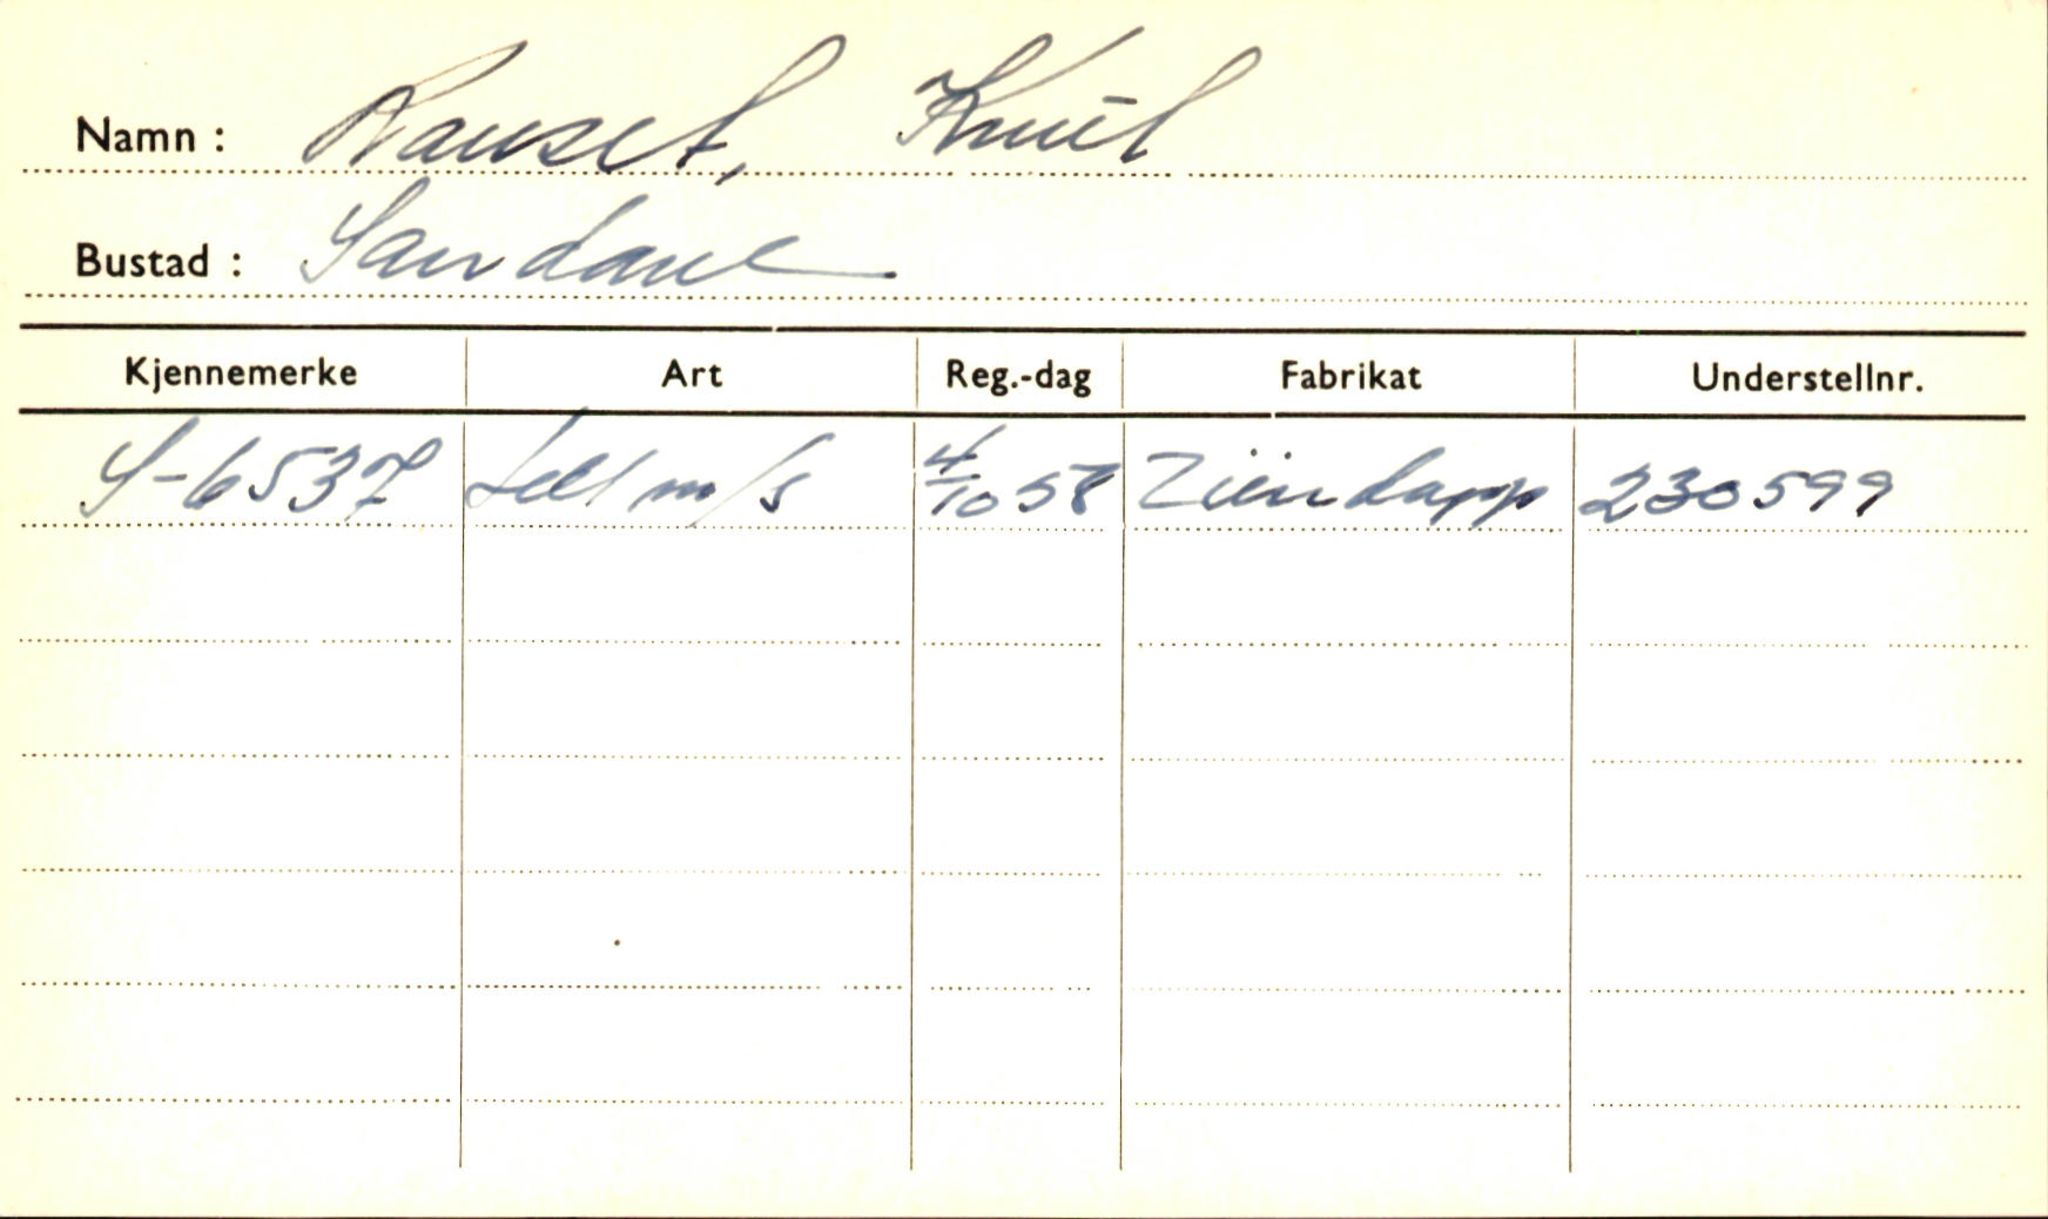 Namn : Rauset, Knut
Bustad : Sandane
Kjennemerke Art Reg.-dag Fabrikat Understellnr.
S-6537 Lett m/s 4/10 58 Zündapp 230599